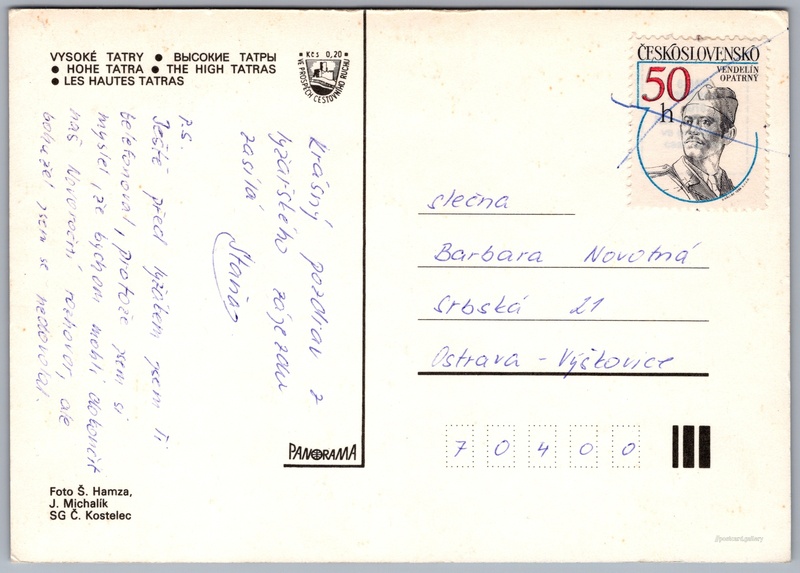 VYSOKÉ TATRY ● ВЫСОКИЕ ТАТРЫ
● HOHE TATRA ● THE HIGH TATRAS
● LES HAUTES TATRAS
Kčs 0,20
VE PROSPĚCH CESTOVNÍHO RUCHU
Krásný pozdrav z
lyžařského zájezdu
zasílá
Stanďo
P.S
Ještě před lyžákem jsem Ti
telefonoval, protože jsem si
myslel, že bychom mohli dokončit
náš Novoroční rozhovor, ale
bohužel jsem se nedovolal.
PANORAMA
Foto Š. Hamza,
J. Michalík
SG Č. Kostelec
ČESKOSLOVENSKO
50
h
VENDELÍN
OPATRNÝ
slečna
Barbara Novotná
Srbská 21
Ostrava - Výškovice
7 0 4 0 0
//postcard.gallery